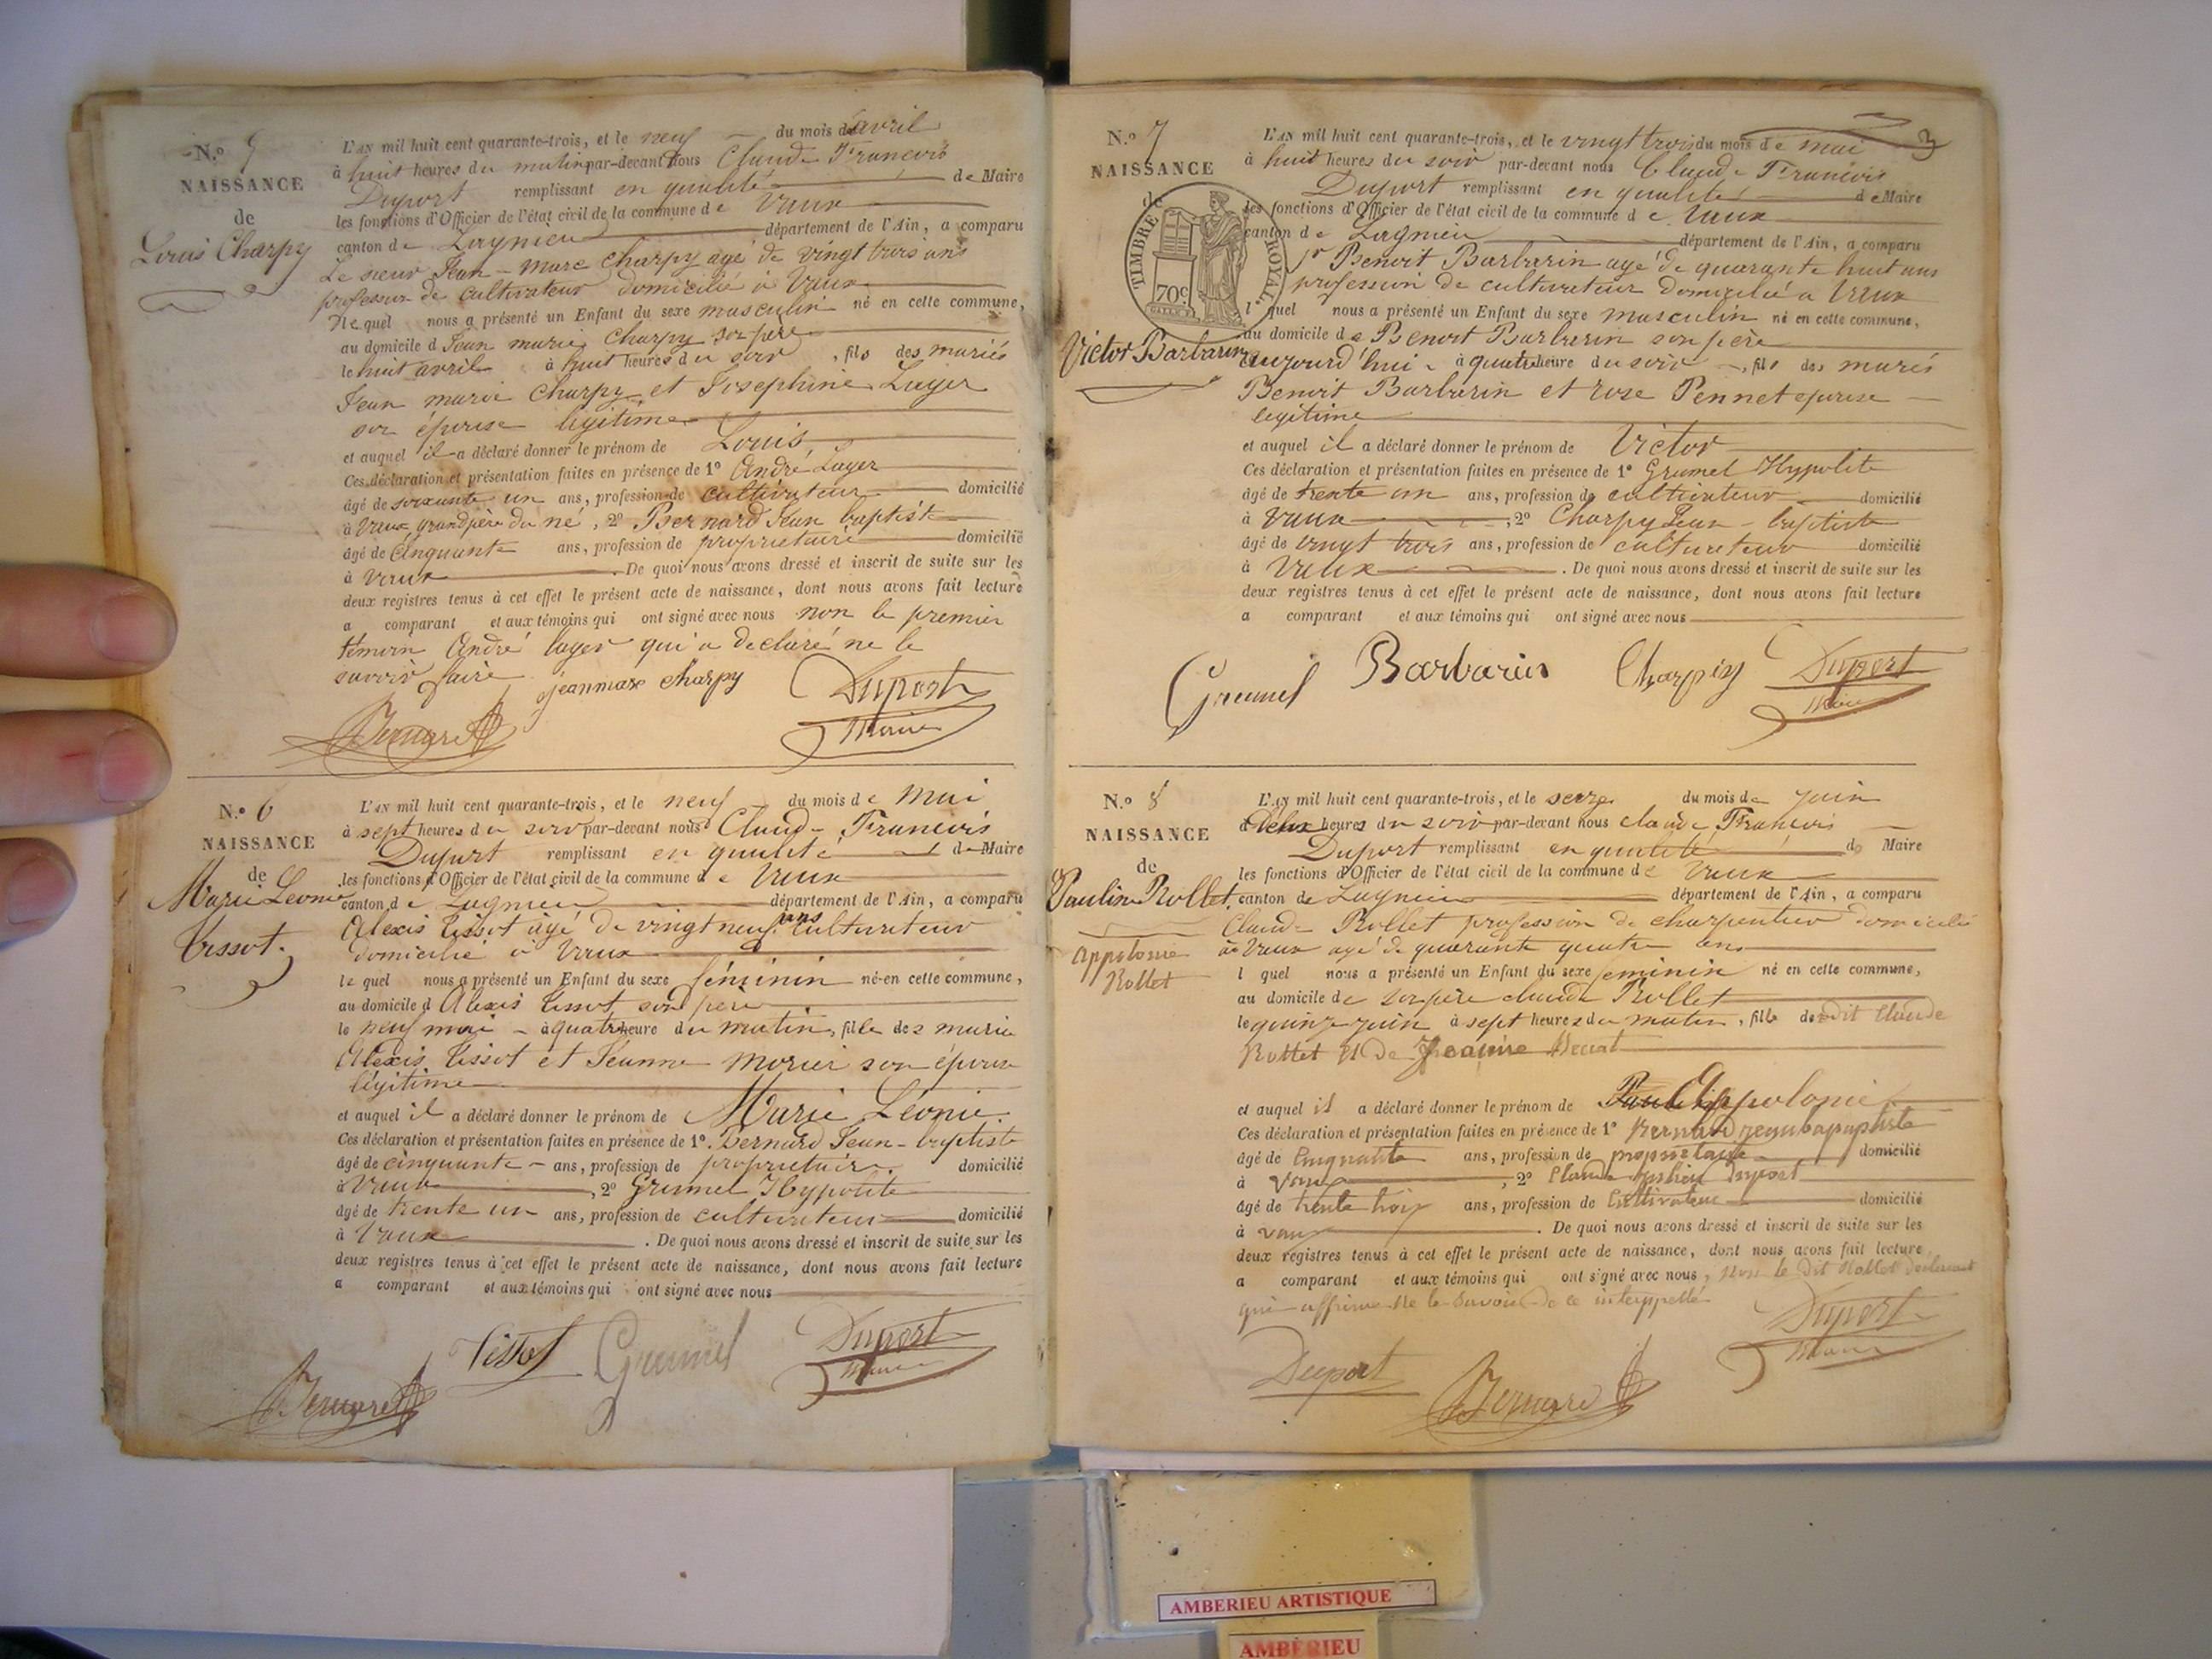 N.º 5
NAISSANCE
de
Louis Charpy
L'AN mil huit cent quarante-trois, et le neuf du mois de avril
à huit heures du matin par-devant nous Claude François
Duport remplissant en qualité de Maire
les fonctions d'Officier de l'état civil de la commune de Vaux
canton de Lagnieu département de l'Ain, a comparu
Le sieur Jean-Marc Charpy agé de vingt trois ans
profession de cultivateur domicilié à Vaux
lequel nous a présenté un Enfant du sexe masculin né en cette commune,
au domicile d Jean marie Charpy son père
le huit avril à huit heures du soir, fils des mariés
Jean marie Charpy et Josephine Layer
son épouse légitime
et auquel il a déclaré donner le prénom de Louis
Ces déclaration et présentation faites en présence de 1º André Layer
âgé de soixante un ans, profession de cultivateur domicilié
à Vaux grand père du né, 2º Bernard Jean baptiste
âgé de Cinquante ans, profession de propriétaire domicilié
à Vaux. De quoi nous avons dressé et inscrit de suite sur les
deux registres tenus à cet effet le présent acte de naissance, dont nous avons fait lecture
a comparant et aux témoins qui ont signé avec nous non le premier
témoin André layer qui a declaré ne le
savoir faire
jeanmarc charpy
Duport
Maire
Bernard
N.º 6
NAISSANCE
de
Marie Leonie
Tissot.
L'AN mil huit cent quarante-trois, et le neuf du mois de Mai
à sept heures du soir par-devant nous Claude François
Duport remplissant en qualité de Maire
les fonctions d'Officier de l'état civil de la commune de Vaux
canton de Lagnieu département de l'Ain, a comparu
Alexis Tissot âgé de vingt neuf ans cultivateur
domicilié à Vaux
lequel nous a présenté un Enfant du sexe féminin né en cette commune,
au domicile d Alexis Tissot son père
le neuf mai à quatre heure du matin, fille des marié
Alexis Tissot et Jeanne Morier son épouse
légitime
et auquel il a déclaré donner le prénom de Marie Léonie.
Ces déclaration et présentation faites en présence de 1º. Bernard Jean-baptiste
âgé de cinquante ans, profession de propriétaire. domicilié
à Vaux, 2º Grumel Hypolite
âgé de trente un ans, profession de cultivateur domicilié
à Vaux. De quoi nous avons dressé et inscrit de suite sur les
deux registres tenus à cet effet le présent acte de naissance, dont nous avons fait lecture
a comparant et aux témoins qui ont signé avec nous
Tissot Grumel Duport
Maire
Bernard
3
N.º 7
NAISSANCE
de
TIMBRE ROYAL.
70c.
Victor Barbarin
L'AN mil huit cent quarante-trois, et le vingt trois du mois de mai
à huit heures du soir par-devant nous Claude François
Duport remplissant en qualité de Maire
les fonctions d'Officier de l'état civil de la commune de Vaux
canton de Lagnieu département de l'Ain, a comparu
Benoit Barbarin agé de quarante huit ans
profession de cultivateur domicilié a Vaux
l quel nous a présenté un Enfant du sexe masculin né en cette commune,
au domicile de Benoit Barbarin son père
aujourd'hui à quatre heure du soir, fils des mariés
Benoit Barbarin et rose Pennet epouse
legitime
et auquel il a déclaré donner le prénom de Victor
Ces déclaration et présentation faites en présence de 1º Grumel Hypolite
âgé de trente un ans, profession de cultivateur domicilié
à Vaux, 2º Charpy Jean-baptiste
âgé de vingt trois ans, profession de cultivateur domicilié
à Vaux. De quoi nous avons dressé et inscrit de suite sur les
deux registres tenus à cet effet le présent acte de naissance, dont nous avons fait lecture
a comparant et aux témoins qui ont signé avec nous
Grumel Barbarin Charpiy Duport
Maire
N.º 8
NAISSANCE
de
Pauline Rollet.
Appolonie
Rollet
L'AN mil huit cent quarante-trois, et le seize du mois de juin
à deux heures du soir par-devant nous claude François
Duport remplissant en qualité de Maire
les fonctions d'Officier de l'état civil de la commune de Vaux
canton de Lagnieu département de l'Ain, a comparu
Claude Rollet profession de charpentier domicilié
à Vaux agé de quarante quatre ans
l quel nous a présenté un Enfant du sexe feminin né en cette commune,
au domicile de son père claude Rollet
le quinze juin à sept heures du matin, fille de dit Claude
Rollet et de Jeanne
et auquel il a déclaré donner le prénom de Appolonie
Ces déclaration et présentation faites en présence de 1º Bernard
âgé de Cinquante ans, profession de propriétaire domicilié
à Vaux, 2º Claude Duport
âgé de trente trois ans, profession de Cultivateur domicilié
à vaux. De quoi nous avons dressé et inscrit de suite sur les
deux registres tenus à cet effet le présent acte de naissance, dont nous avons fait lecture
a comparant et aux témoins qui ont signé avec nous, non le dit Rollet
qui affirme ne le savoir de ce interppellé
Duport
Maire
Duport
Bernard
AMBERIEU ARTISTIQUE
AMBÉRIEU